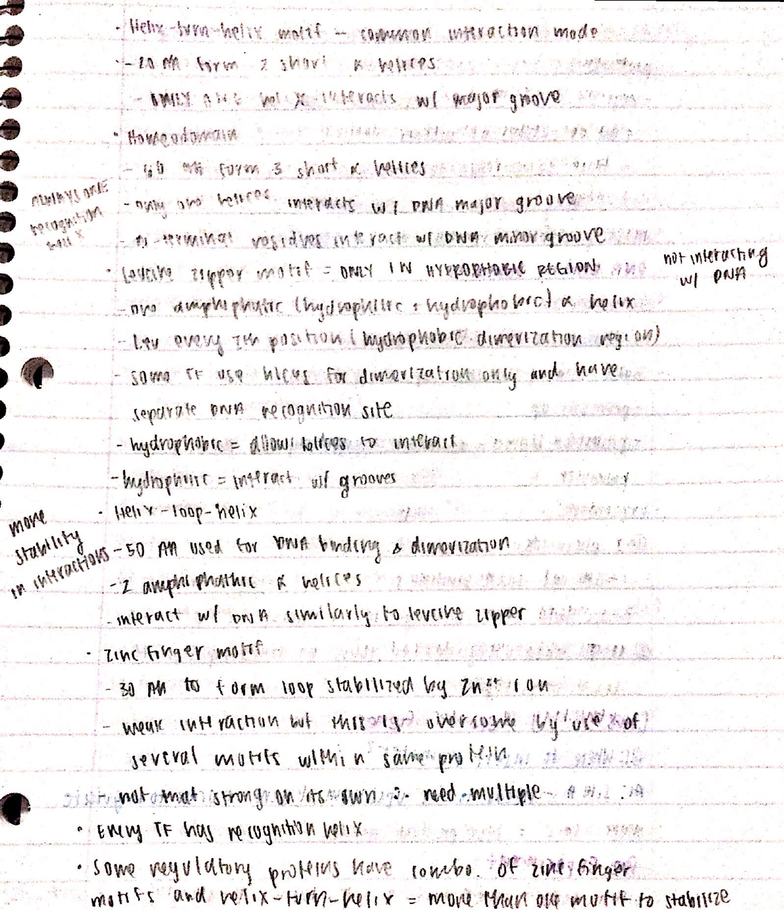 · Helix-turn-helix motif - common interaction mode
- 20 AA form 2 short α helices
- ONLY one helix interacts w/ major groove
· Homeodomain
- 60 AA form 3 short α helices
always one recognition helix
- only one helices interacts w/ DNA major groove
- N-terminal residues interact w/ DNA minor groove
· Leucine zipper motif = ONLY IN HYDROPHOBIC REGION
not interacting w/ DNA
- one amphipathic (hydrophilic + hydrophobic) α helix
- Leu every 7th position (hydrophobic dimerization region)
- some TF use helices for dimerization only and have
separate DNA recognition site
- hydrophobic = allows helices to interact
- hydrophilic = interact w/ grooves
· Helix-loop-helix
more stability in interactions
- 50 AA used for DNA binding & dimerization
- 2 amphiphathic α helices
- interact w/ DNA similarly to leucine zipper
· zinc finger motif
- 30 AA to form loop stabilized by Zn²⁺ ion
- weak interaction but this is overcome by use of
several motifs within same protein
not that strong on its own ∴ need multiple
· Every TF has recognition helix
· Some regulatory proteins have combo. of zinc finger
motifs and helix-turn-helix = more than one motif to stabilize